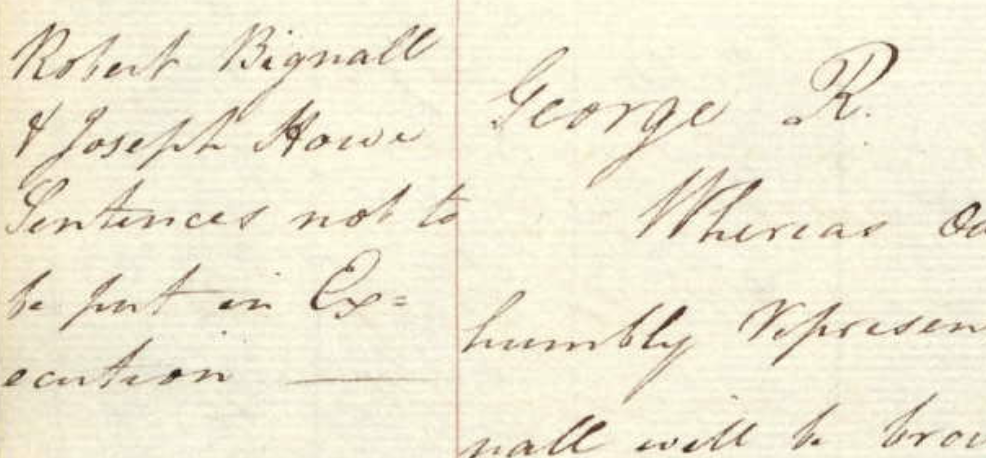 Robert Bignall
& Joseph Howe
Sentences not to
be put in Ex=
ecution
George R.
Whereas
humbly represen
nall will be brou